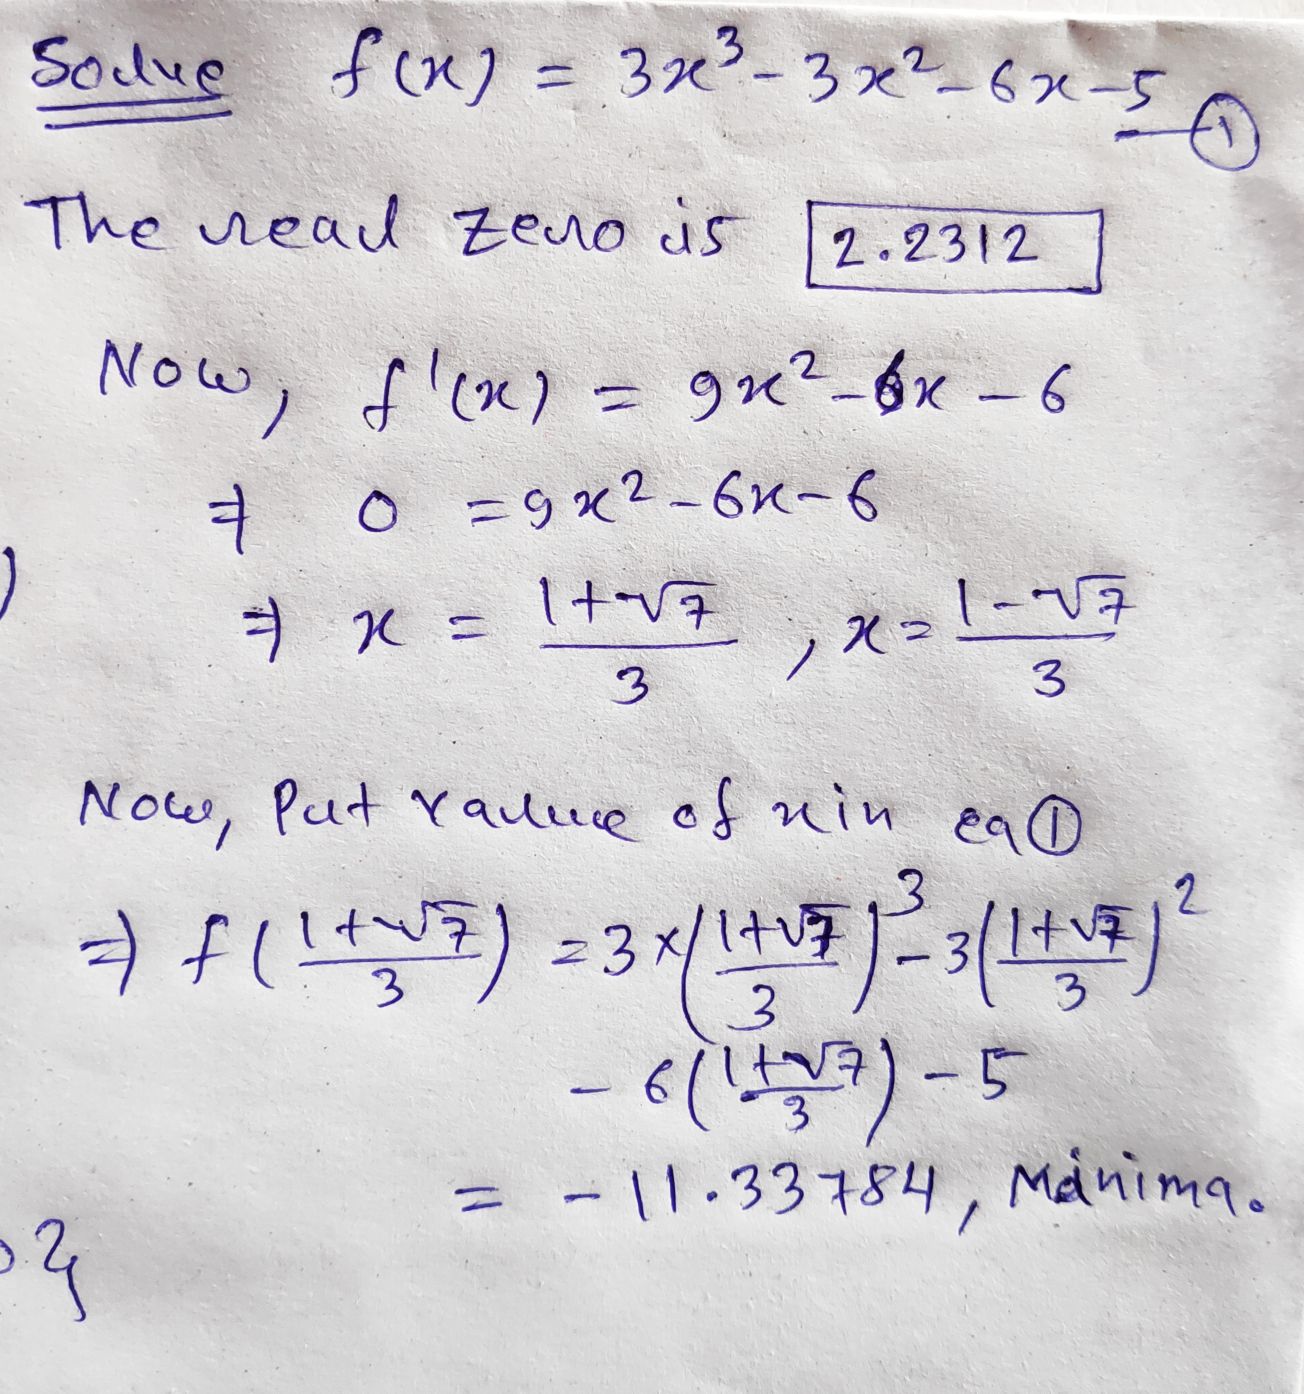 Solve f(x) = 3x³-3x²-6x-5 ①
The real zero is 2.2312
Now, f'(x) = 9x²-6x-6
⇒ 0 =9x²-6x-6
⇒ x = (1+√7)/3 , x= (1-√7)/3
Now, Put value of x in eq ①
⇒ f((1+√7)/3) =3×((1+√7)/3)³-3((1+√7)/3)²
- 6((1+√7)/3) - 5
= -11.33784, Minima.